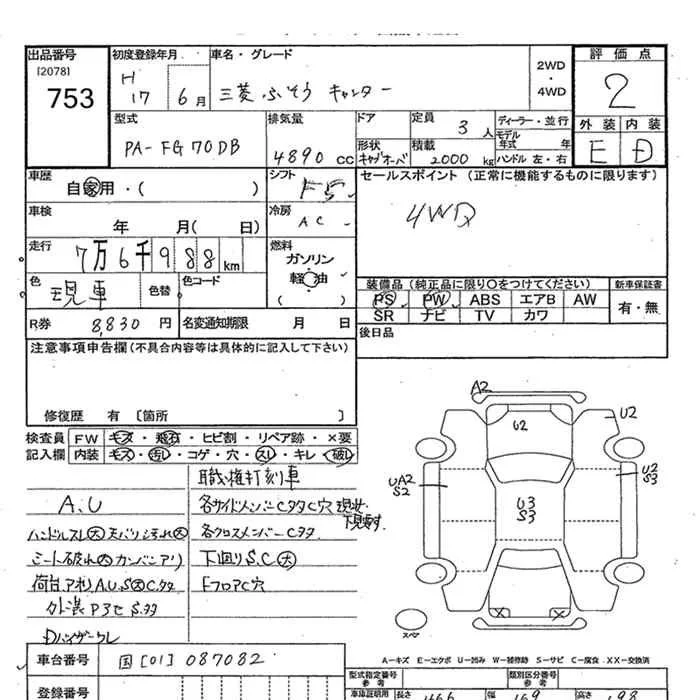 出品番号
[2078]
753
初度登録年月
H 17 6月
車名・グレード
三菱 ふそう キャンター
2WD
・
4WD
評価点
2
外装 内装
E D
型式
PA-FG70DB
排気量
4890 CC
ドア
定員
3 人
ディーラー・並行
モデル
年式 年
形状
キャブオーバ
積載
2000 kg
ハンドル 左・右
車歴
自家用・( )
シフト
F5
セールスポイント (正常に機能するものに限ります)
4WD
車検
年 月( 日)
冷房
AC
走行
7万6千988km
燃料
ガソリン
軽油
( )
色
現車
色替
色コード
装備品 (純正品に限り○をつけてください)
新車保証書
PS PW ABS エアB AW
有・無
SR ナビ TV カワ
R券
8,830 円
名変通知期限
月 日
後日品
注意事項申告欄(不具合内容等は具体的に記入して下さい)
修復歴 有 〔箇所 〕
検査員
記入欄
FW キズ・飛石・ヒビ割・リペア跡・×要
内装 キズ・汚レ・コゲ・穴・スレ・キレ・破レ
職権打刻車
A.U
各サイドメンバーCタタC穴 現状
下見要す
ハンドルスレ大 天バリ汚れ大
各クロスメンバーCタタ
シート破れ大 カンバンアリ
下回りS.C大
荷台アオリA.U.S大C.タタ
FフロアC穴
外装P3セ S.タタ
Dバイザーワレ
A2
U2
U2
UA2
S2
U3
S3
U2
S3
× ×
スペア
A=キズ E=エクボ U=凹み W=補修跡 S=サビ C=腐食 XX=交換済
車台番号
国[01]087082
登録番号
型式指定番号
参考
類別区分番号
参考
車庫証明用
長さ
466
幅
169
高さ
198